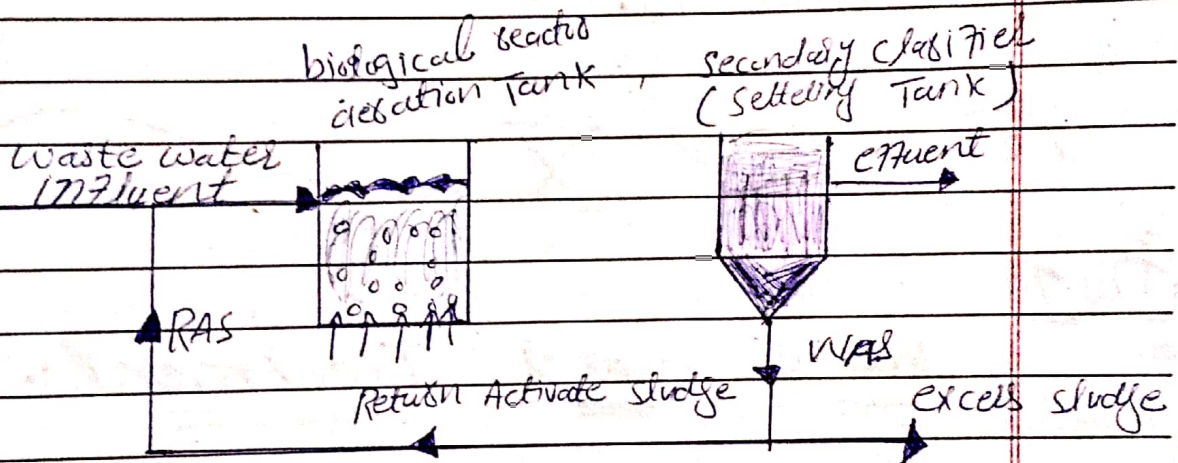 biological reactio
aeration Tank , secondary clarifier
(Setteling Tank)
waste water
Influent
effluent
RAS
WAS
Return Activate sludge
excess sludge